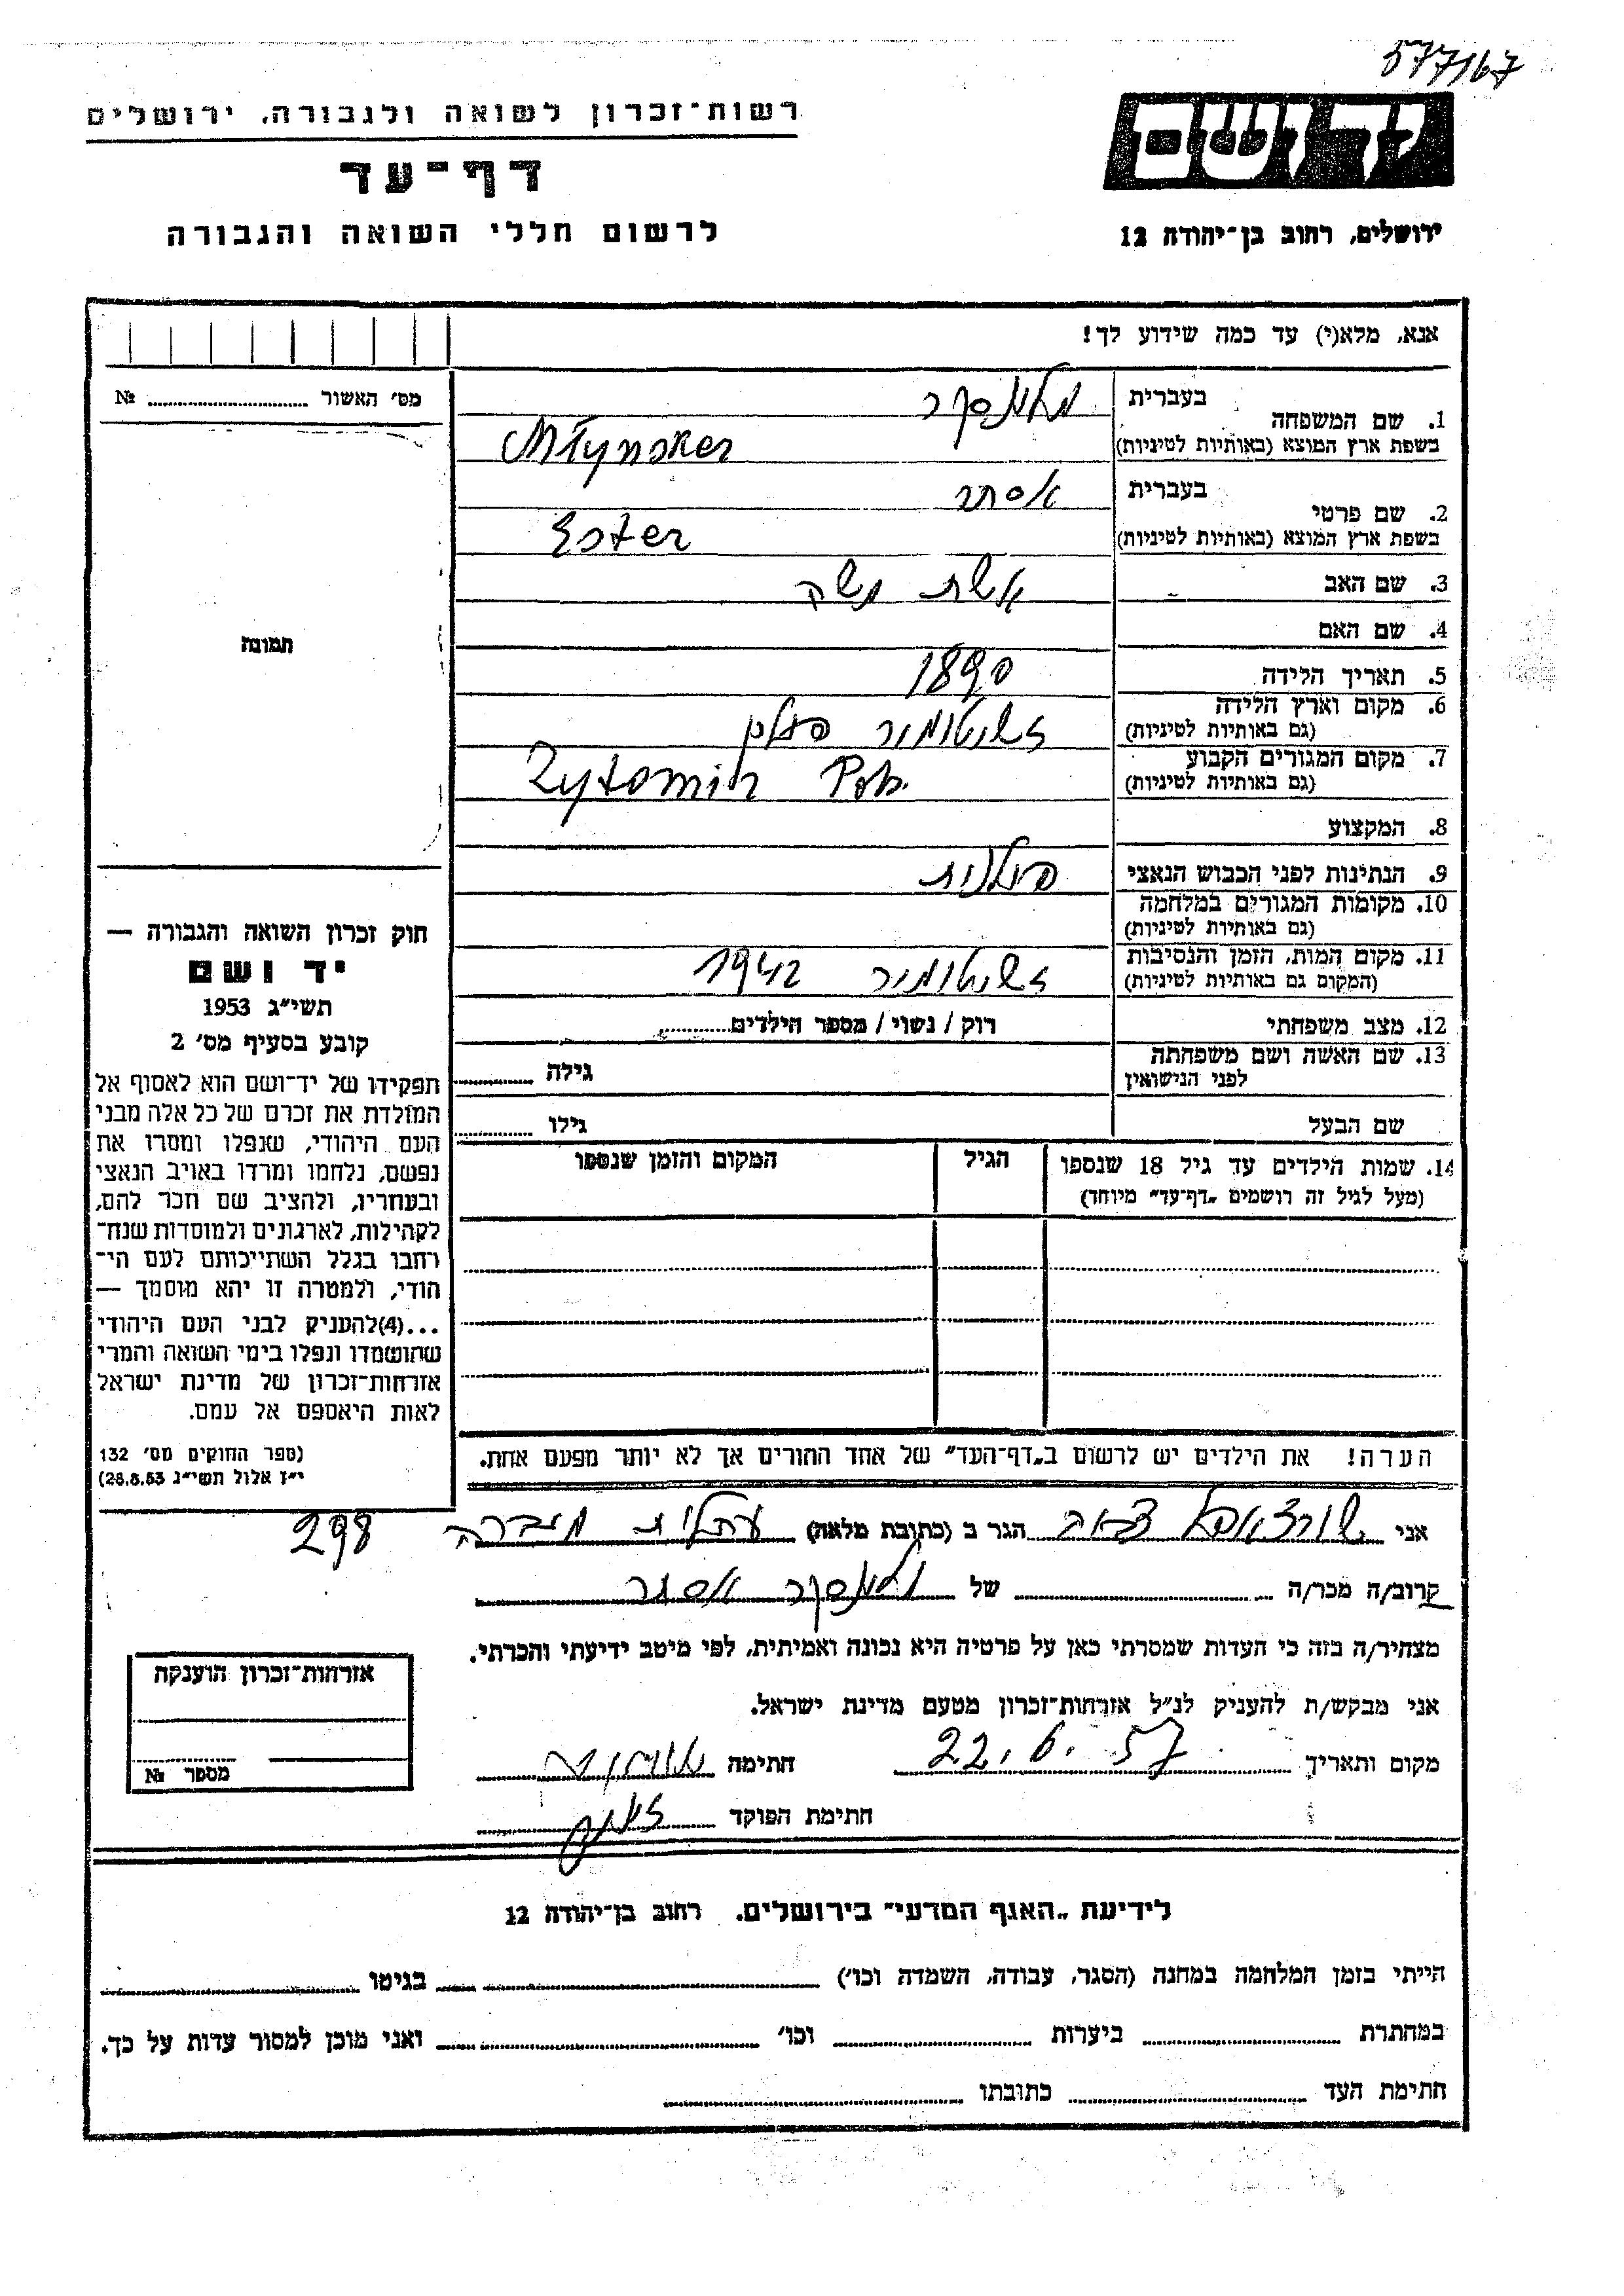 577167
רשות־זכרון לשואה ולגבורה, ירושלים
ידושם
דף־עד
לרשום חללי השואה והגבורה
ירושלים, רחוב בן־יהודה 12
אנא, מלא(י) עד כמה שידוע לך!
מס׳ האשור № 
1. שם המשפחה
בעברית מלינסקר
בשפת ארץ המוצא (באותיות לטיניות) Młynsker
2. שם פרטי
בעברית אסתר
בשפת ארץ המוצא (באותיות לטיניות) Ester
3. שם האב אשת משה
4. שם האם
5. תאריך הלידה 1890
6. מקום וארץ הלידה
(גם באותיות לטיניות) זשיטומיר פולין
7. מקום המגורים הקבוע
(גם באותיות לטיניות) Zytomir Pol.
8. המקצוע
9. הנתינות לפני הכבוש הנאצי פולנית
10. מקומות המגורים במלחמה
(גם באותיות לטיניות)
11. מקום המות, הזמן והנסיבות
(המקום גם באותיות לטיניות) זשיטומיר 1942
12. מצב משפחתי רוק / נשוי / מספר הילדים
13. שם האשה ושם משפחתה
לפני הנישואין גילה
שם הבעל גילו
14. שמות הילדים עד גיל 18 שנספו הגיל המקום והזמן שנספו
(מעל לגיל זה רושמים „דף־עד״ מיוחד)
הערה! את הילדים יש לרשום ב„דף־העד״ של אחד ההורים אך לא יותר מפעם אחת.
תמונה
חוק זכרון השואה והגבורה —
יד ושם
תשי״ג 1953
קובע בסעיף מס׳ 2
תפקידו של יד־ושם הוא לאסוף אל
המולדת את זכרם של כל אלה מבני
העם היהודי, שנפלו ומסרו את
נפשם, נלחמו ומרדו באויב הנאצי
ובעוזריו, ולהציב שם וזכר להם,
לקהילות, לארגונים ולמוסדות שנח־
רבו בגלל השתייכותם לעם הי־
הודי, ולמטרה זו יהא מוסמך —
...(4)להעניק לבני העם היהודי
שהושמדו ונפלו בימי השואה והמרי
אזרחות־זכרון של מדינת ישראל
לאות היאספם אל עמם.
(ספר החוקים מס׳ 132
י״ז אלול תשי״ג 28.8.53)
אני הגר ב (כתובת מלאה) עתלית 298
קרוב/ה מכר/ה של מלינסקר אסתר
מצהיר/ה בזה כי העדות שמסרתי כאן על פרטיה היא נכונה ואמיתית, לפי מיטב ידיעתי והכרתי.
אני מבקש/ת להעניק לנ״ל אזרחות־זכרון מטעם מדינת ישראל.
מקום ותאריך 22.6.57 חתימה
חתימת הפוקד
אזרחות־זכרון הוענקה
מספר №
לידיעת „האגף המדעי״ בירושלים. רחוב בן־יהודה 12
הייתי בזמן המלחמה במחנה (הסגר, עבודה, השמדה וכו׳) בגיטו
במחתרת ביערות וכו׳ ואני מוכן למסור עדות על כך.
חתימת העד כתובתו